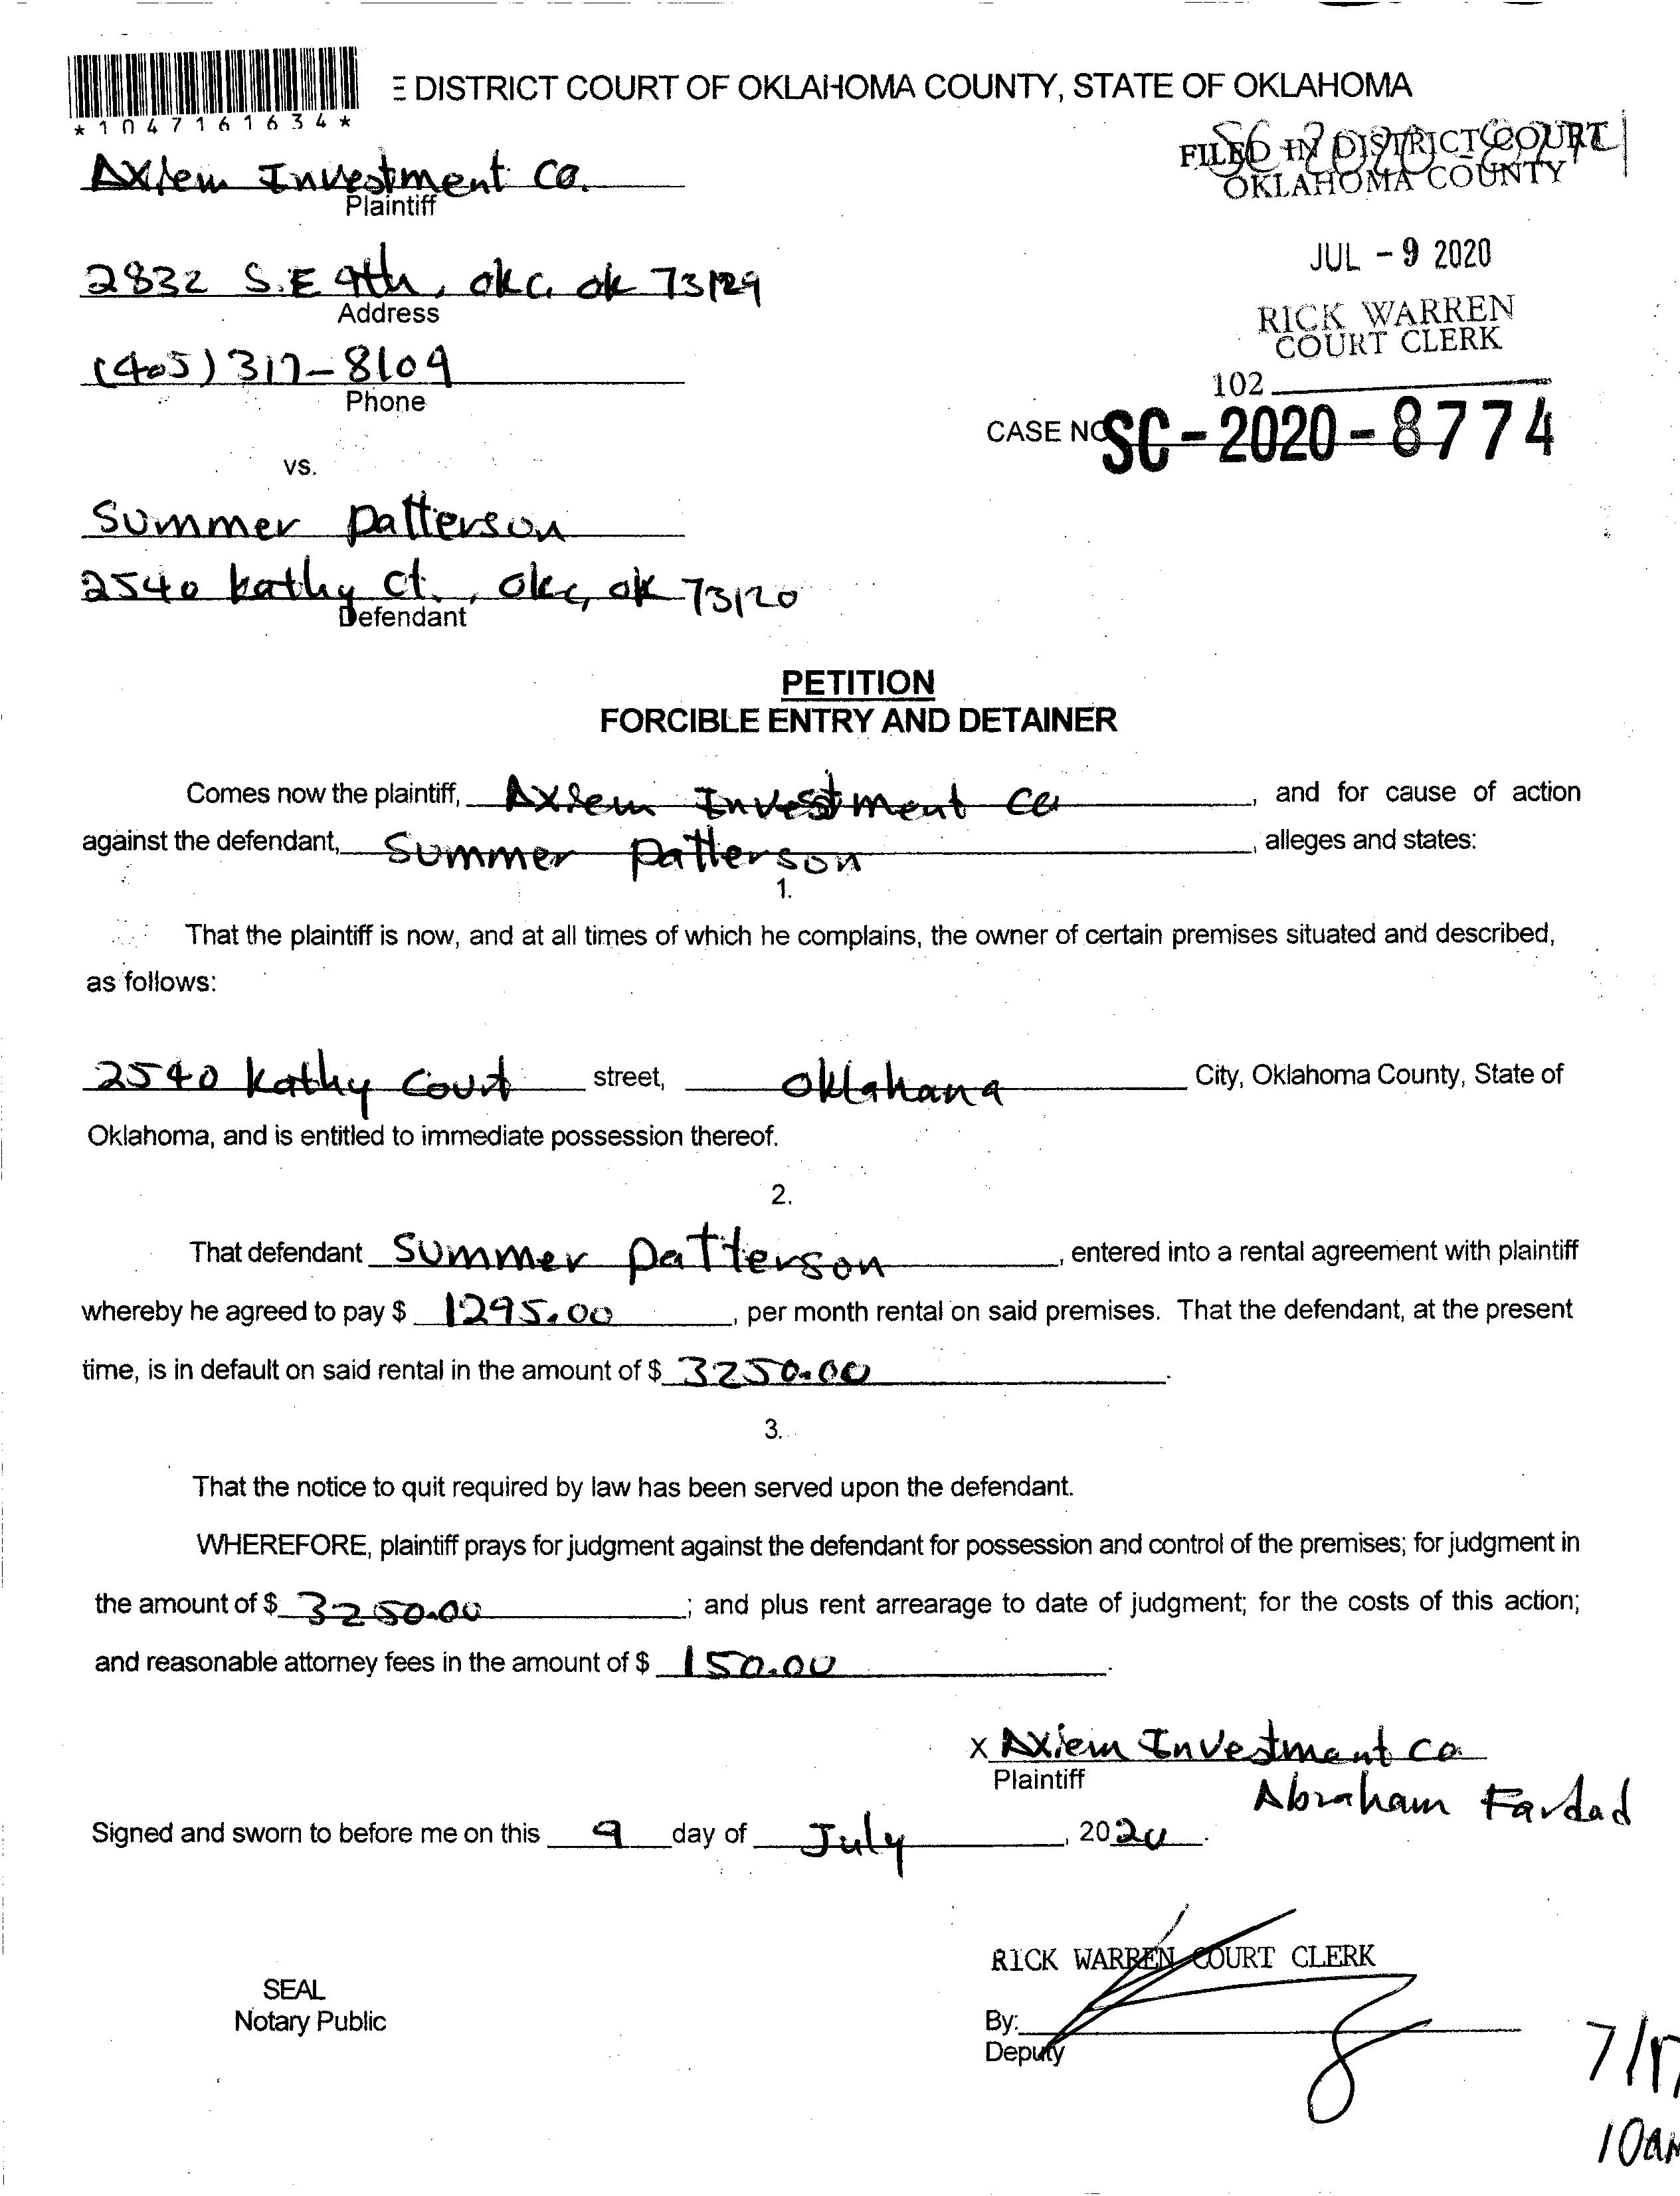 DISTRICT COURT OF OKLAHOMA COUNTY, STATE OF OKLAHOMA
*1047161634*
FILED IN DISTRICT COURT
OKLAHOMA COUNTY
Axiem Investment Co.
Plaintiff
JUL - 9 2020
2832 S.E 9th, okc, ok 73129
Address
RICK WARREN
COURT CLERK
(405) 317-8109
Phone
102
CASE NO SC-2020-8774
vs.
Summer Patterson
2540 kathy ct., okc, ok 73120
Defendant
PETITION
FORCIBLE ENTRY AND DETAINER
Comes now the plaintiff, Axiem Investment Co, and for cause of action
against the defendant, Summer Patterson, alleges and states:
1.
That the plaintiff is now, and at all times of which he complains, the owner of certain premises situated and described,
as follows:
2540 kathy Court street, Oklahana City, Oklahoma County, State of
Oklahoma, and is entitled to immediate possession thereof.
2.
That defendant Summer Patterson, entered into a rental agreement with plaintiff
whereby he agreed to pay $ 1295.00, per month rental on said premises. That the defendant, at the present
time, is in default on said rental in the amount of $ 3250.00.
3.
That the notice to quit required by law has been served upon the defendant.
WHEREFORE, plaintiff prays for judgment against the defendant for possession and control of the premises; for judgment in
the amount of $ 3250.00; and plus rent arrearage to date of judgment; for the costs of this action;
and reasonable attorney fees in the amount of $ 150.00.
X Axiem Investment Co.
Plaintiff
Abraham Fardad
Signed and sworn to before me on this 9 day of July, 2020.
RICK WARREN COURT CLERK
SEAL
Notary Public
By:
Deputy
10am